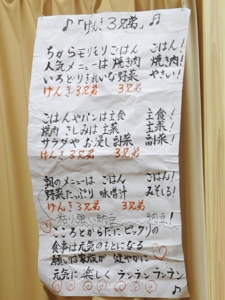 ♪「げんき3兄弟」♫
ちからモリモリごはん ごはん!
人気メニューは焼き肉 焼き肉!
いろどりきれいな野菜 やさい!
げんき3兄弟 3兄弟
ごはんやパンは主食 主食!
焼肉 さしみは主菜 主菜!
サラダやお浸し副菜 副菜!
げんき3兄弟 3兄弟
朝のメニューは ごはん ごはん!
野菜たっぷり 味噌汁 みそしる!
粘り強い納豆 納豆!
げんき3兄弟 3兄弟
こころとからだに ピックリの
食事は元気のもとになる
願いは家族が 健やかに
元気に楽しく ランランランラン
♪